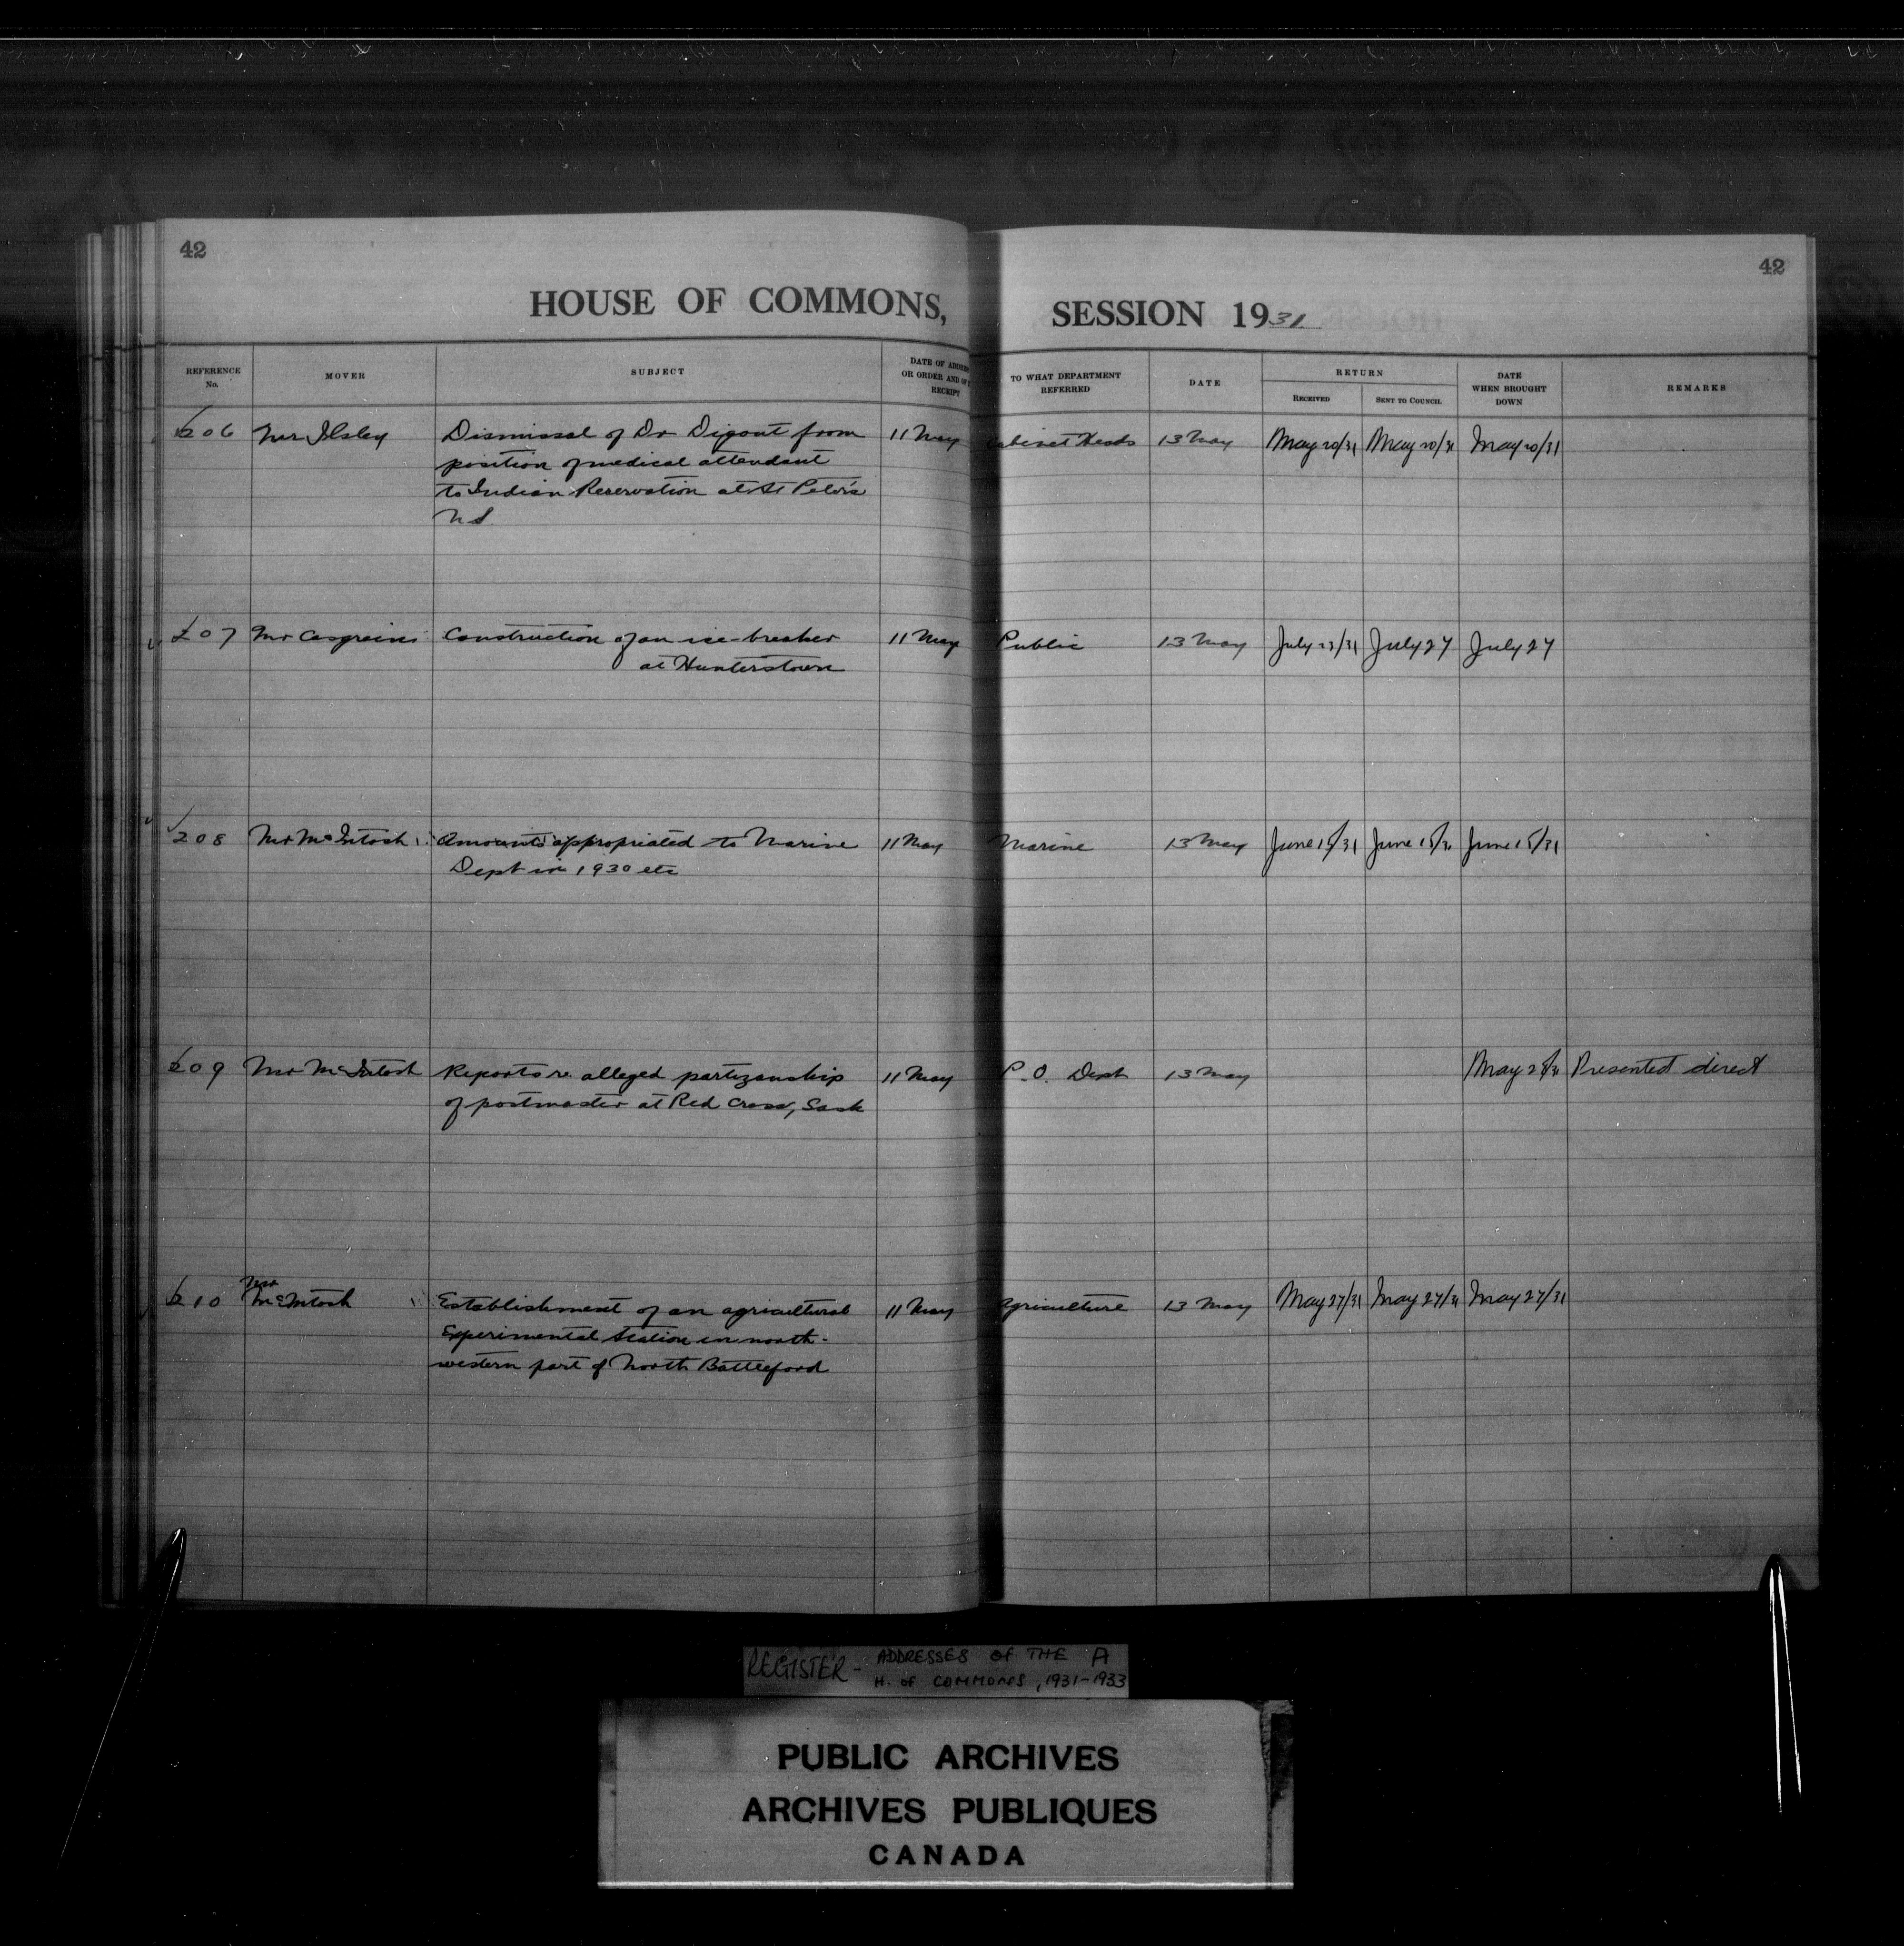 42
42
HOUSE OF COMMONS, SESSION 1931
REFERENCE No.
MOVER
SUBJECT
DATE OF ADDRESS OR ORDER AND OF RECEIPT
TO WHAT DEPARTMENT REFERRED
DATE
RETURN
RECEIVED
SENT TO COUNCIL
DATE WHEN BROUGHT DOWN
REMARKS
206 Mr Ilsley Dismissal of Dr Digout from 11 May 13 May May 20/31 May 20/31 May 20/31
position of medical attendant
to Indian Reservation at St Peter's
N S
207 Mr Casgrain Construction of an ice-breaker 11 May Public 13 May July 23/31 July 27 July 27
at Hunterstown
208 Mr McIntosh Amounts appropriated to Marine 11 May Marine 13 May June /31 June June /31
Dept in 1930 etc
209 Mr McIntosh Reports re alleged partizanship 11 May P.O. Dept 13 May May Presented direct
of postmaster at Red Cross, Sask
210 Mr McIntosh Establishment of an agricultural 11 May Agriculture 13 May May 27/31 May 27/31 May 27/31
Experimental Station in north-
western part of North Battleford
REGISTER - ADDRESSES OF THE A
H. OF COMMONS, 1931-1933
PUBLIC ARCHIVES
ARCHIVES PUBLIQUES
CANADA